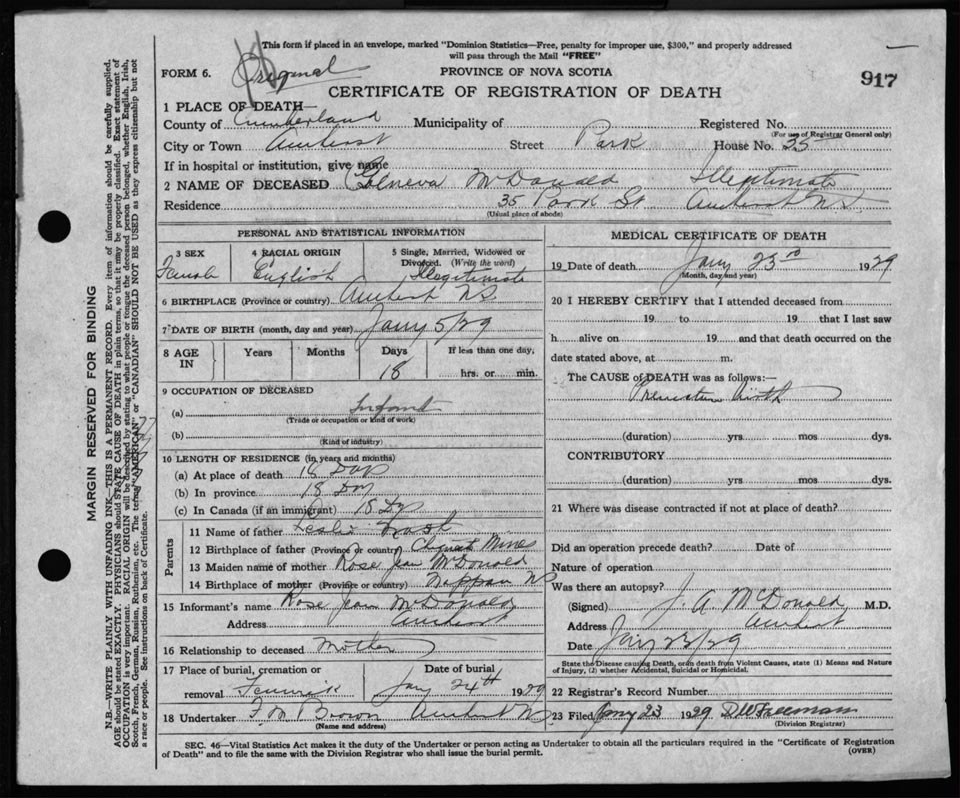 This form if placed in an envelope, marked "Dominion Statistics—Free, penalty for improper use, $300," and properly addressed
will pass through the Mail "FREE"
FORM 6.
Original
PROVINCE OF NOVA SCOTIA
917
CERTIFICATE OF REGISTRATION OF DEATH
1 PLACE OF DEATH—
County of Cumberland Municipality of Registered No.
(For use of Registrar General only)
City or Town Amherst Street Park House No. 25
If in hospital or institution, give name
2 NAME OF DECEASED Geneva McDonald Illegitimate
Residence 35 Park St Amherst N.S.
(Usual place of abode)
PERSONAL AND STATISTICAL INFORMATION
3 SEX 4 RACIAL ORIGIN 5 Single, Married, Widowed or
Divorced. (Write the word)
Female English Illegitimate
6 BIRTHPLACE (Province or country) Amherst NS
7 DATE OF BIRTH (month, day and year) Jany 5/29
8 AGE IN Years Months Days If less than one day,
18 hrs. or min.
9 OCCUPATION OF DECEASED
(a) Infant
(Trade or occupation or kind of work)
(b)
(Kind of industry)
10 LENGTH OF RESIDENCE (in years and months)
(a) At place of death 18 Days
(b) In province 18 Day
(c) In Canada (if an immigrant) 18 Dy
Parents
11 Name of father Leslie
12 Birthplace of father (Province or country) Mines
13 Maiden name of mother Rose Jean McDonald
14 Birthplace of mother (Province or country) Nappan NS
15 Informant's name Rose Jean McDonald
Address Amherst
16 Relationship to deceased Mother
17 Place of burial, cremation or Date of burial
removal Fenwick Jany 24th 1929
18 Undertaker F. M. Brown Amherst NS
(Name and address)
MEDICAL CERTIFICATE OF DEATH
19 Date of death Jany 23rd 1929
(Month, day and year)
20 I HEREBY CERTIFY that I attended deceased from
19 to 19 that I last saw
h alive on 19 and that death occurred on the
date stated above, at m.
The CAUSE of DEATH was as follows:—
Premature birth
(duration) yrs. mos dys.
CONTRIBUTORY
(duration) yrs. mos. dys.
21 Where was disease contracted if not at place of death?
Did an operation precede death? Date of
Nature of operation
Was there an autopsy?
(Signed) J. A. McDonald, M.D.
Address Amherst
Date Jany 23/29
State the Disease causing Death, or in death from Violent Causes, state (1) Means and Nature
of Injury, (2) whether Accidental, Suicidal or Homicidal.
22 Registrar's Record Number
23 Filed Jany 23 1929 DW Freeman
(Division Registrar)
SEC. 46—Vital Statistics Act makes it the duty of the Undertaker or person acting as Undertaker to obtain all the particulars required in the "Certificate of Registration
of Death" and to file the same with the Division Registrar who shall issue the burial permit.
(OVER)
MARGIN RESERVED FOR BINDING
N.B.—WRITE PLAINLY WITH UNFADING INK—THIS IS A PERMANENT RECORD. Every item of information should be carefully supplied.
AGE should be stated EXACTLY. PHYSICIANS should STATE CAUSE OF DEATH in plain terms, so that it may be properly classified. Exact statement of
OCCUPATION is very important. RACIAL ORIGIN will be described by stating to what people or tongue the deceased person belonged, whether English, Irish,
Scotch, French, German, Russian, Ruthenian, etc. The terms "AMERICAN" or "CANADIAN" SHOULD NOT BE USED as they express citizenship but not
a race or people. See instructions on back of Certificate.